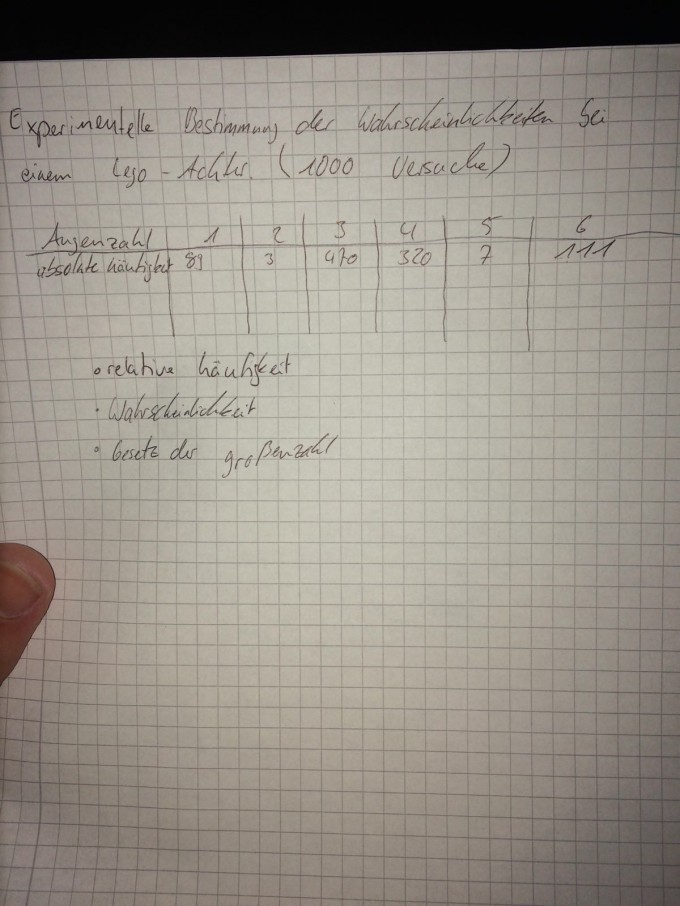 Experimentelle Bestimmung der Wahrscheinlichkeiten bei
einem Lego-Achter. (1000 Versuche)
Augenzahl 1 2 3 4 5 6
absolute häufigkeit 89 3 470 320 7 111
• relative häufigkeit
• Wahrscheinlichkeit
• Gesetz der großenzahl